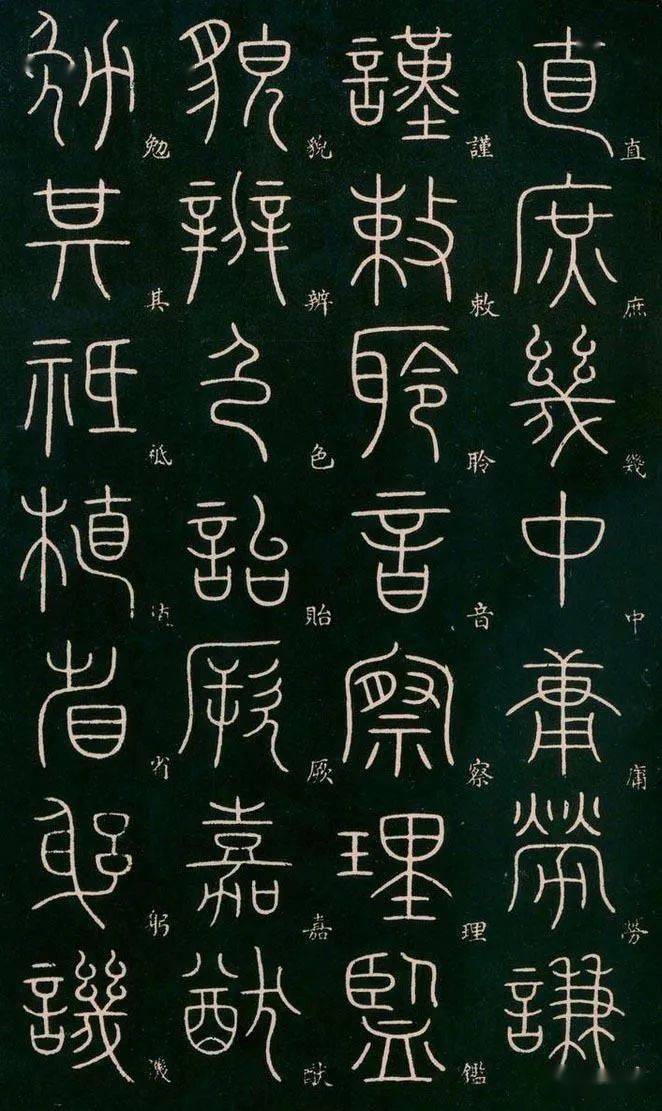 直庶幾中庸勞謙
直庶幾中庸勞
謹敕聆音察理監
謹敕聆音察理鑑
貌辨色詒厥嘉猷
貌辨色貽厥嘉猷
勉其祗植省躬譏
勉其祗植省躬譏